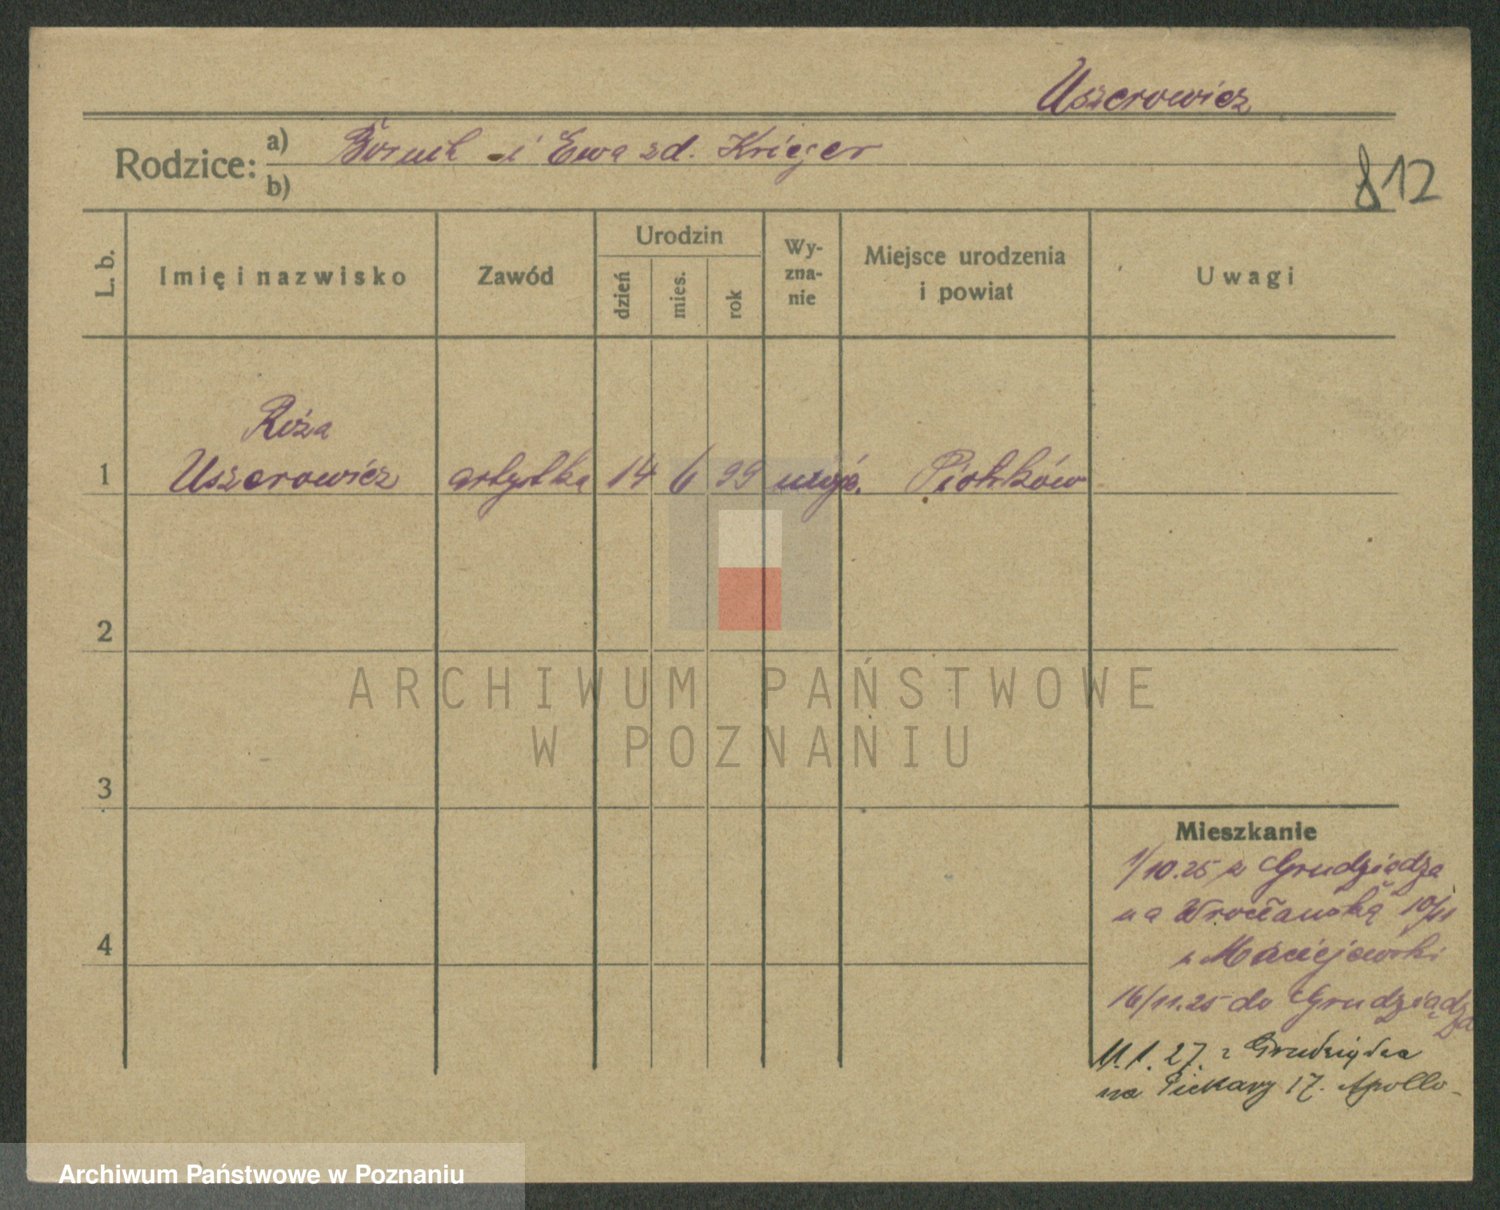 Uszerowicz
Rodzice: a) Boruch i Ewa zd. Krieger
b)
812
L. b. Imię i nazwisko Zawód Urodzin dzień mies. rok Wy-zna-nie Miejsce urodzenia i powiat Uwagi
Róża
1 Uszerowicz artystka 14 6 99 mojż. Piotrków
2
3
4
Mieszkanie
1/10.25 z Grudziądza
na Wrocławską 10/11
Maciejewski
16/11.25 do Grudziądza
11.1.27. z Grudziądza
na Piekary 17. Apollo
ARCHIWUM PAŃSTWOWE
W POZNANIU
Archiwum Państwowe w Poznaniu